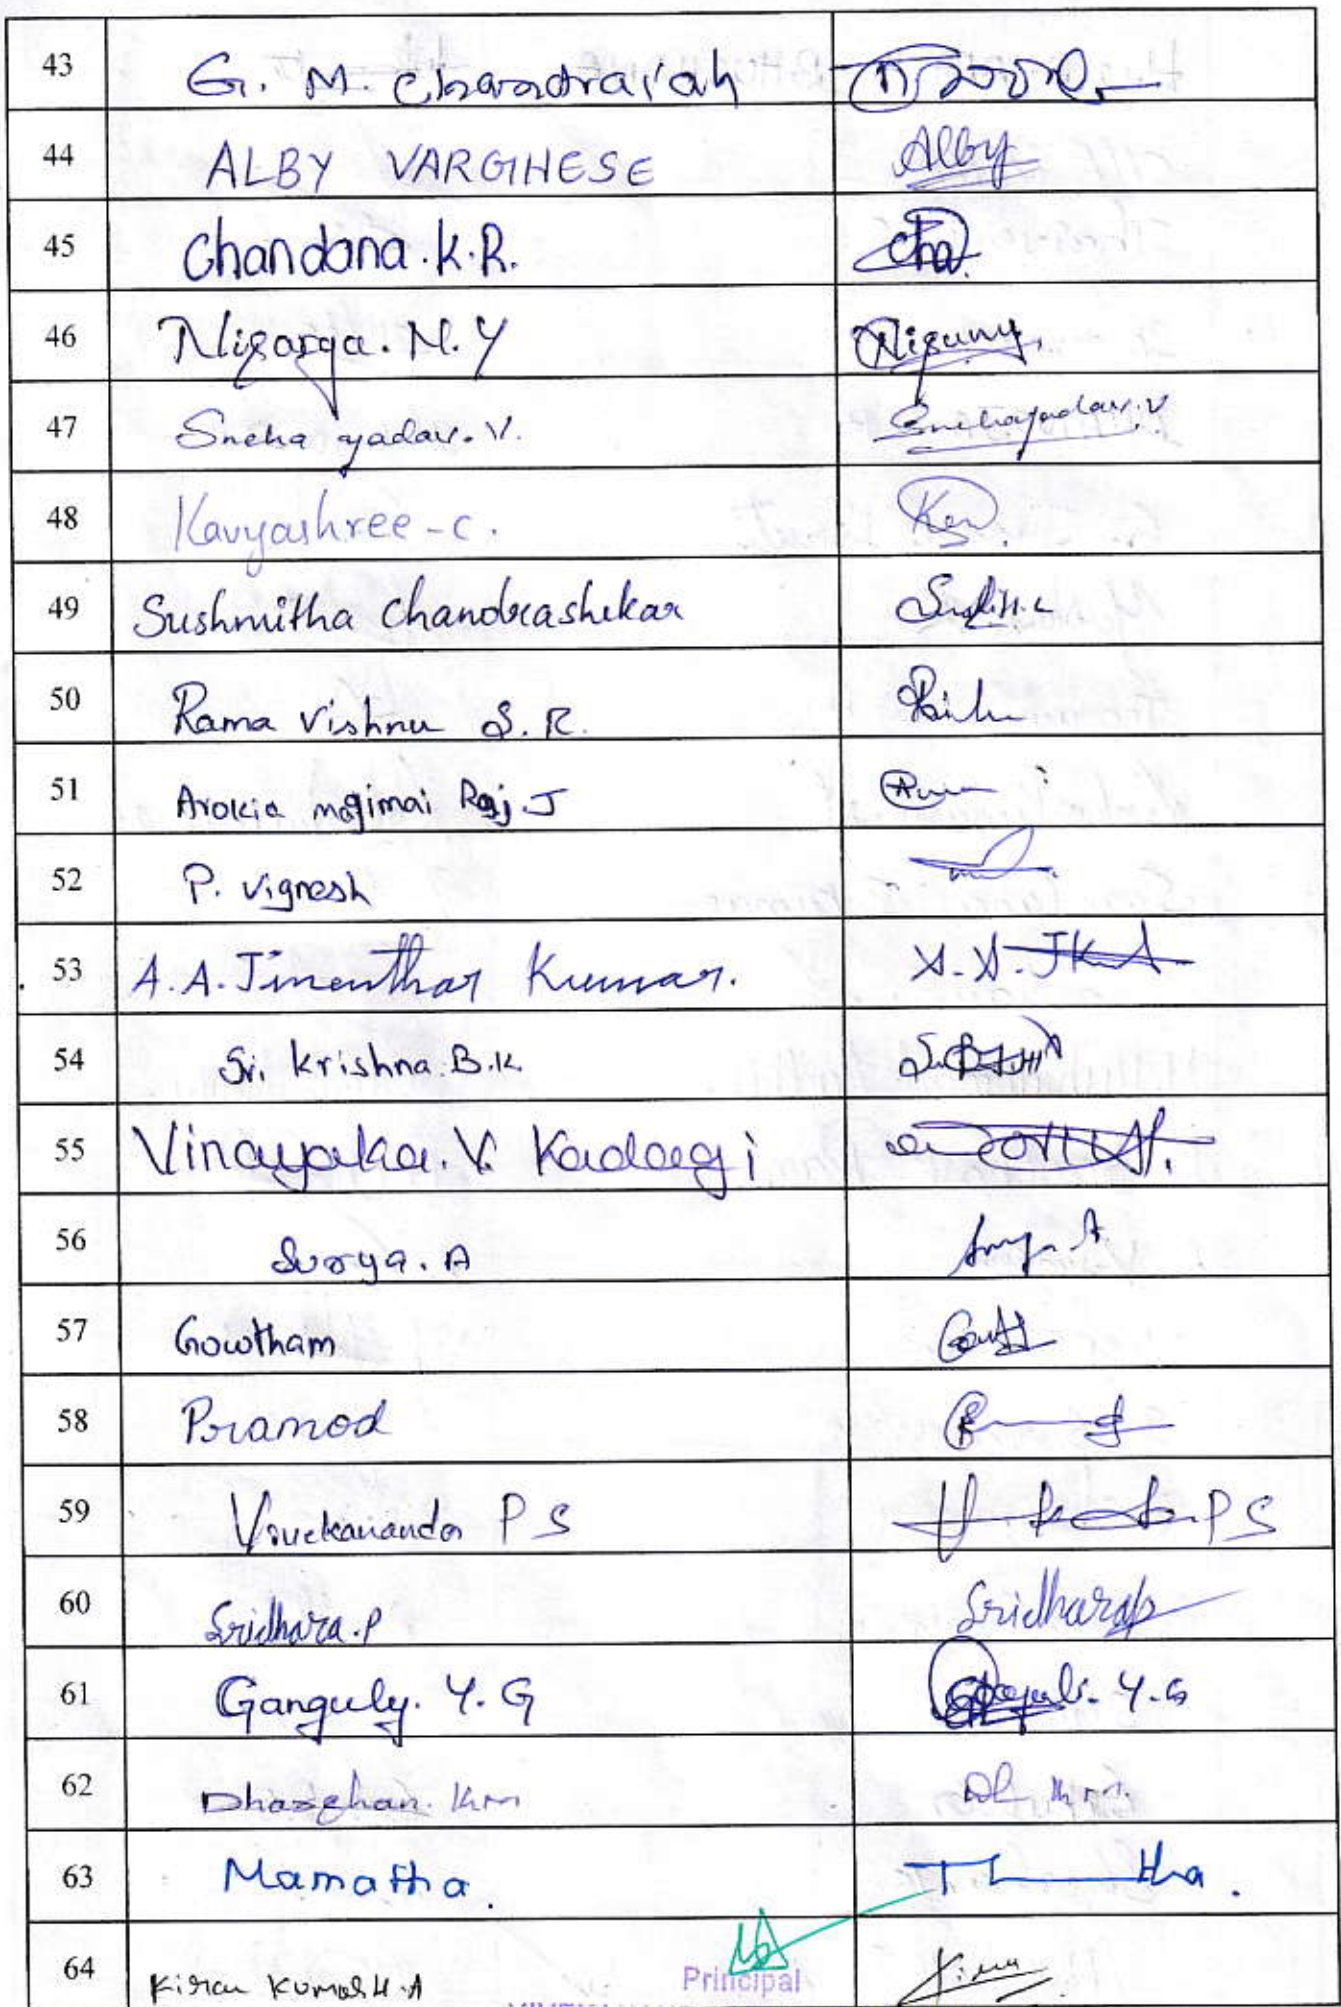 43 G. M. Chandraiah
44 ALBY VARGHESE Alby
45 Chandana.K.R. Cha
46 Nisarga.N.Y
47 Sneha yadav.V. Snehayadav.V
48 Kavyashree-C.
49 Sushmitha Chandrashekar
50 Rama Vishnu S.R.
51 Arokia magimai Raj.J
52 P. Vignesh
53 A.A.Jinenthar Kumar.
54 Sri Krishna.B.K.
55 Vinayaka.V. Kadagi
56 Surya.A
57 Gowtham
58 Pramod
59 Vivekananda P S P S
60 Sridhara.P Sridhara.P
61 Ganguly. Y.G Y.G
62 Dharshan. KM
63 Mamatha.
64 Kiran Kumar H.A
Principal